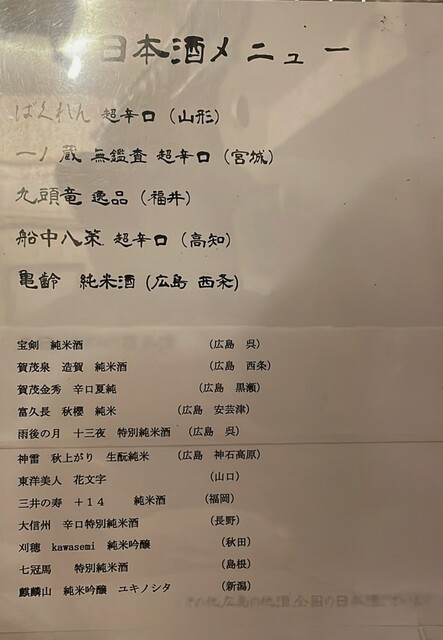 日本酒メニュー
ばくれん 超辛口 (山形)
一ノ蔵 無鑑査 超辛口 (宮城)
九頭竜 逸品 (福井)
船中八策 超辛口 (高知)
亀齢 純米酒 (広島 西条)
宝剣 純米酒 (広島 呉)
賀茂泉 造賀 純米酒 (広島 西条)
賀茂金秀 辛口夏純 (広島 黒瀬)
富久長 秋櫻 純米 (広島 安芸津)
雨後の月 十三夜 特別純米酒 (広島 呉)
神雷 秋上がり 生酛純米 (広島 神石高原)
東洋美人 花文字 (山口)
三井の寿 +14 純米酒 (福岡)
大信州 辛口特別純米酒 (長野)
刈穂 kawasemi 純米吟醸 (秋田)
七冠馬 特別純米酒 (島根)
麒麟山 純米吟醸 ユキノシタ (新潟)
その他広島の地酒全国の日本酒